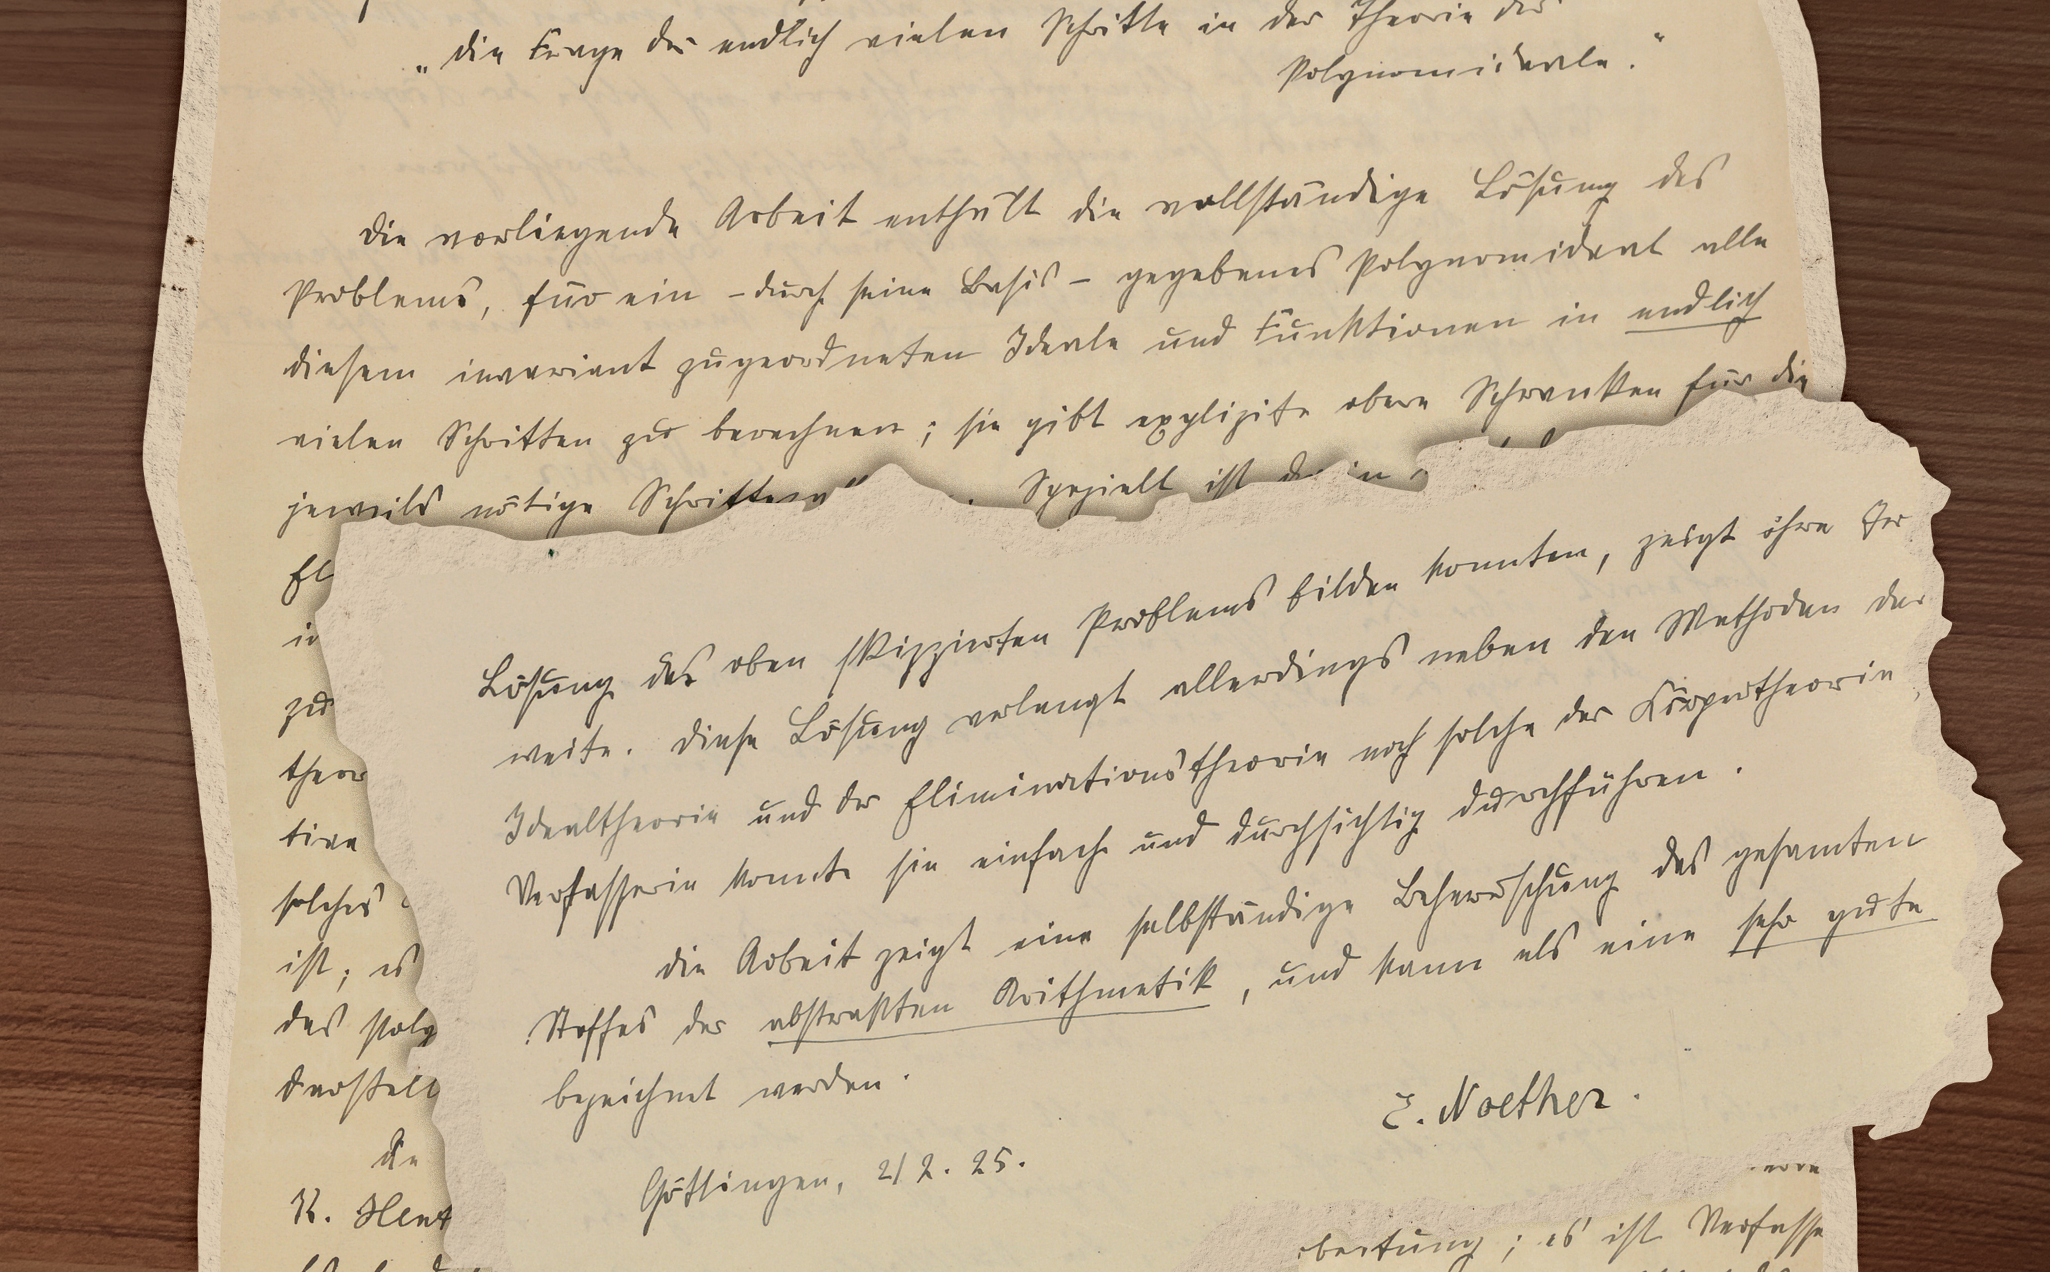 „Die Frage der endlich vielen Schritte in der Theorie der
Polynomideale."
Die vorliegende Arbeit enthält die vollständige Lösung des
Problems, für ein – durch seine Basis – gegebenes Polynomideal alle
diesem invariant zugeordneten Ideale und Funktionen in endlich
vielen Schritten zu berechnen; sie gibt explizite obere Schranken für die
jeweils nötige Speziell ist
zu
solches
ist; es
des
Die
K.
Lösung des oben skizzierten Problems bilden konnten, zeigt ihre
weite. Diese Lösung verlangt allerdings neben den Methoden der
Idealtheorie und der Eliminationstheorie noch solche der Körpertheorie,
Verfasserin konnte sie einfach und durchsichtig durchführen.
Die Arbeit zeigt eine selbständige Beherrschung des gesamten
Stoffes der abstrakten Arithmetik, und kann als eine sehr gute
bezeichnet werden.
E. Noether.
Göttingen, 2/2. 25.
; es ist